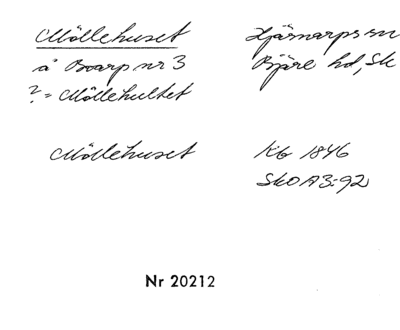 Möllehuset Hjärnarps sn
å Boarp nr 3 Bjäre hd, Sk
? = Möllehultet
Möllehuset Kb 1846
Sko A3:92
Nr 20212